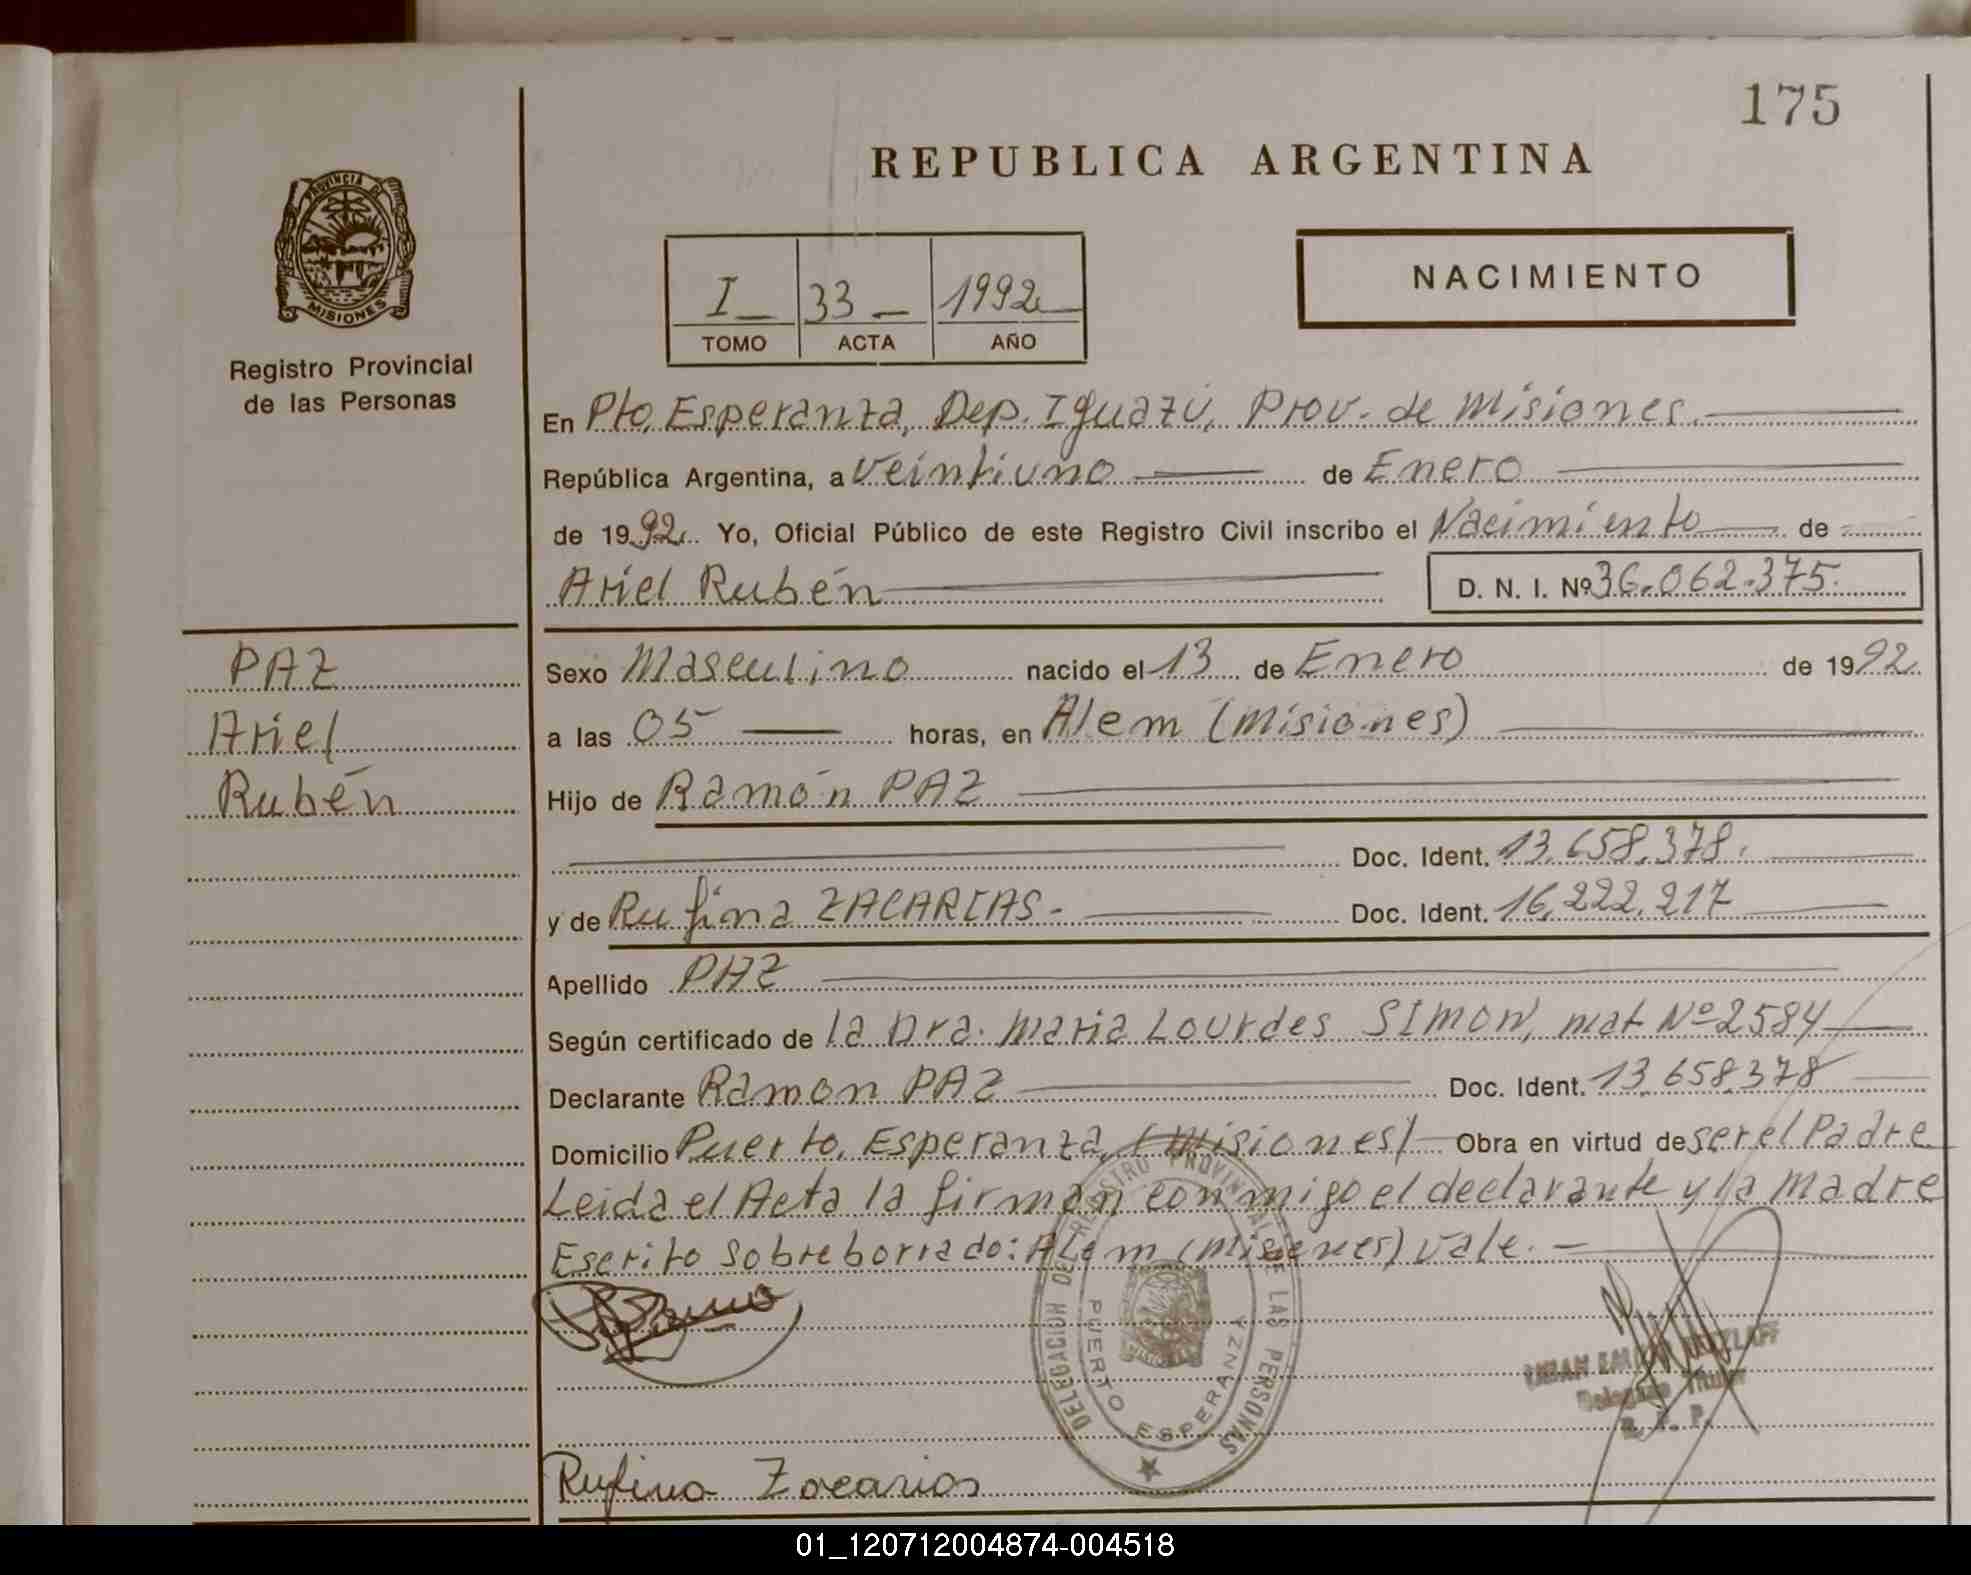 175
REPUBLICA ARGENTINA
PROVINCIA DE
MISIONES
Registro Provincial
de las Personas
I 33 1992
TOMO ACTA AÑO
NACIMIENTO
En Pto. Esperanza, Dep. Iguazú, Prov. de Misiones.
República Argentina, a veintiuno de Enero
de 1992. Yo, Oficial Público de este Registro Civil inscribo el Nacimiento de
Ariel Rubén D. N. I. Nº 36.062.375.
PAZ
Ariel
Rubén
Sexo Masculino nacido el 13 de Enero de 1992.
a las 05 horas, en Alem (Misiones)
Hijo de Ramón PAZ
Doc. Ident. 13.658.378.
y de Rufina ZACARIAS.- Doc. Ident. 16.222.217
Apellido PAZ
Según certificado de la Dra. Maria Lourdes SIMON, mat Nº 2584
Declarante Ramon PAZ Doc. Ident. 13.658.378
Domicilio Puerto Esperanza, (Misiones) Obra en virtud de ser el Padre
Leida el Acta la firman conmigo el declarante y la Madre
Escrito sobre borrado: Alem (Misiones) vale.-
DELEGACION DEL REGISTRO PROVINCIAL DE LAS PERSONAS
PUERTO ESPERANZA
Delegado Titular
R. P. P.
Rufina Zacarias
01_120712004874-004518